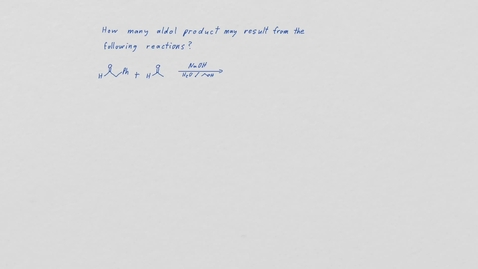 How many aldol product may result from the
following reactions?
H O Ph + H O NaOH
H2O / OH